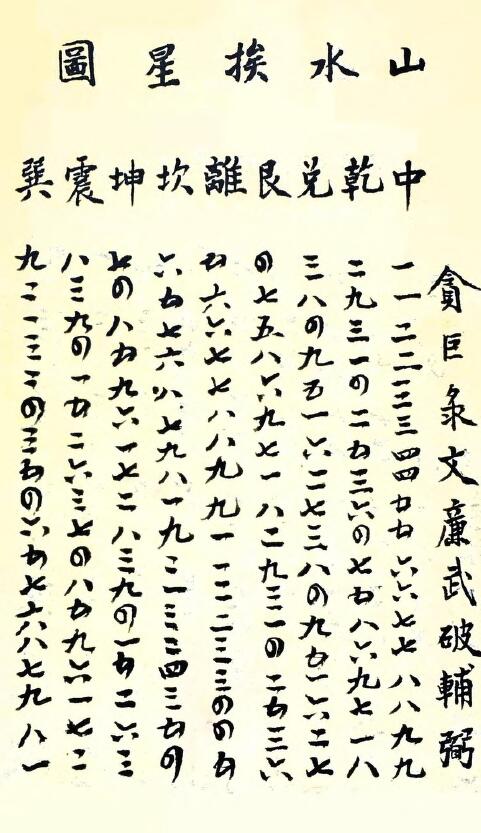 山水挨星圖
中乾兌艮離坎坤震巽
貪巨彔文廉武破輔弼
一一二二三三四四五五六六七七八八九九
二九三一四二五三六四七五八六九七一八
三八四九五一六二七三八四九五一六二七
四七五八六九七一八二九三一四二五三六
五六六七七八八九九一一二二三三四四五
六五七六八七九八一九二一三二四三五四
七四八五九六一七二八三九四一五二六三
八三九四一五二六三七四八五九六一七二
九二一三二四三五四六五七六八七九八一